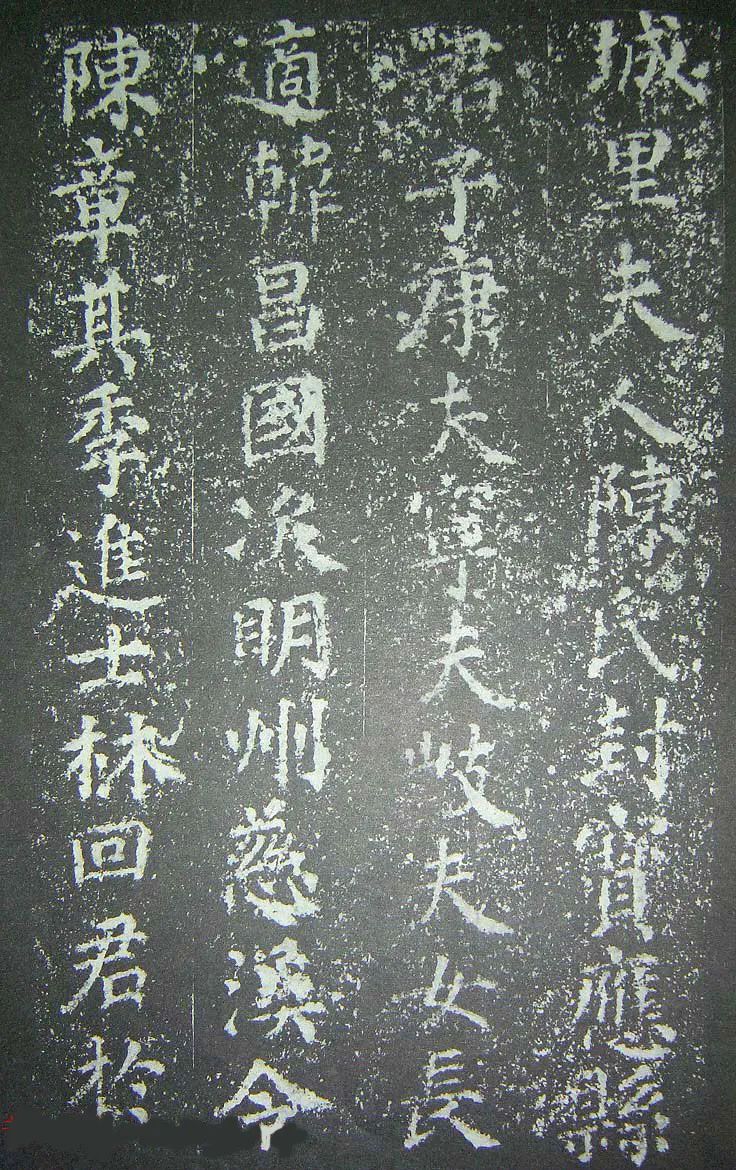 城里夫人陳氏封寶應縣
君子康夫寧夫岐夫女長
適韓昌國次明州慈溪令
陳章其季進士林回君於